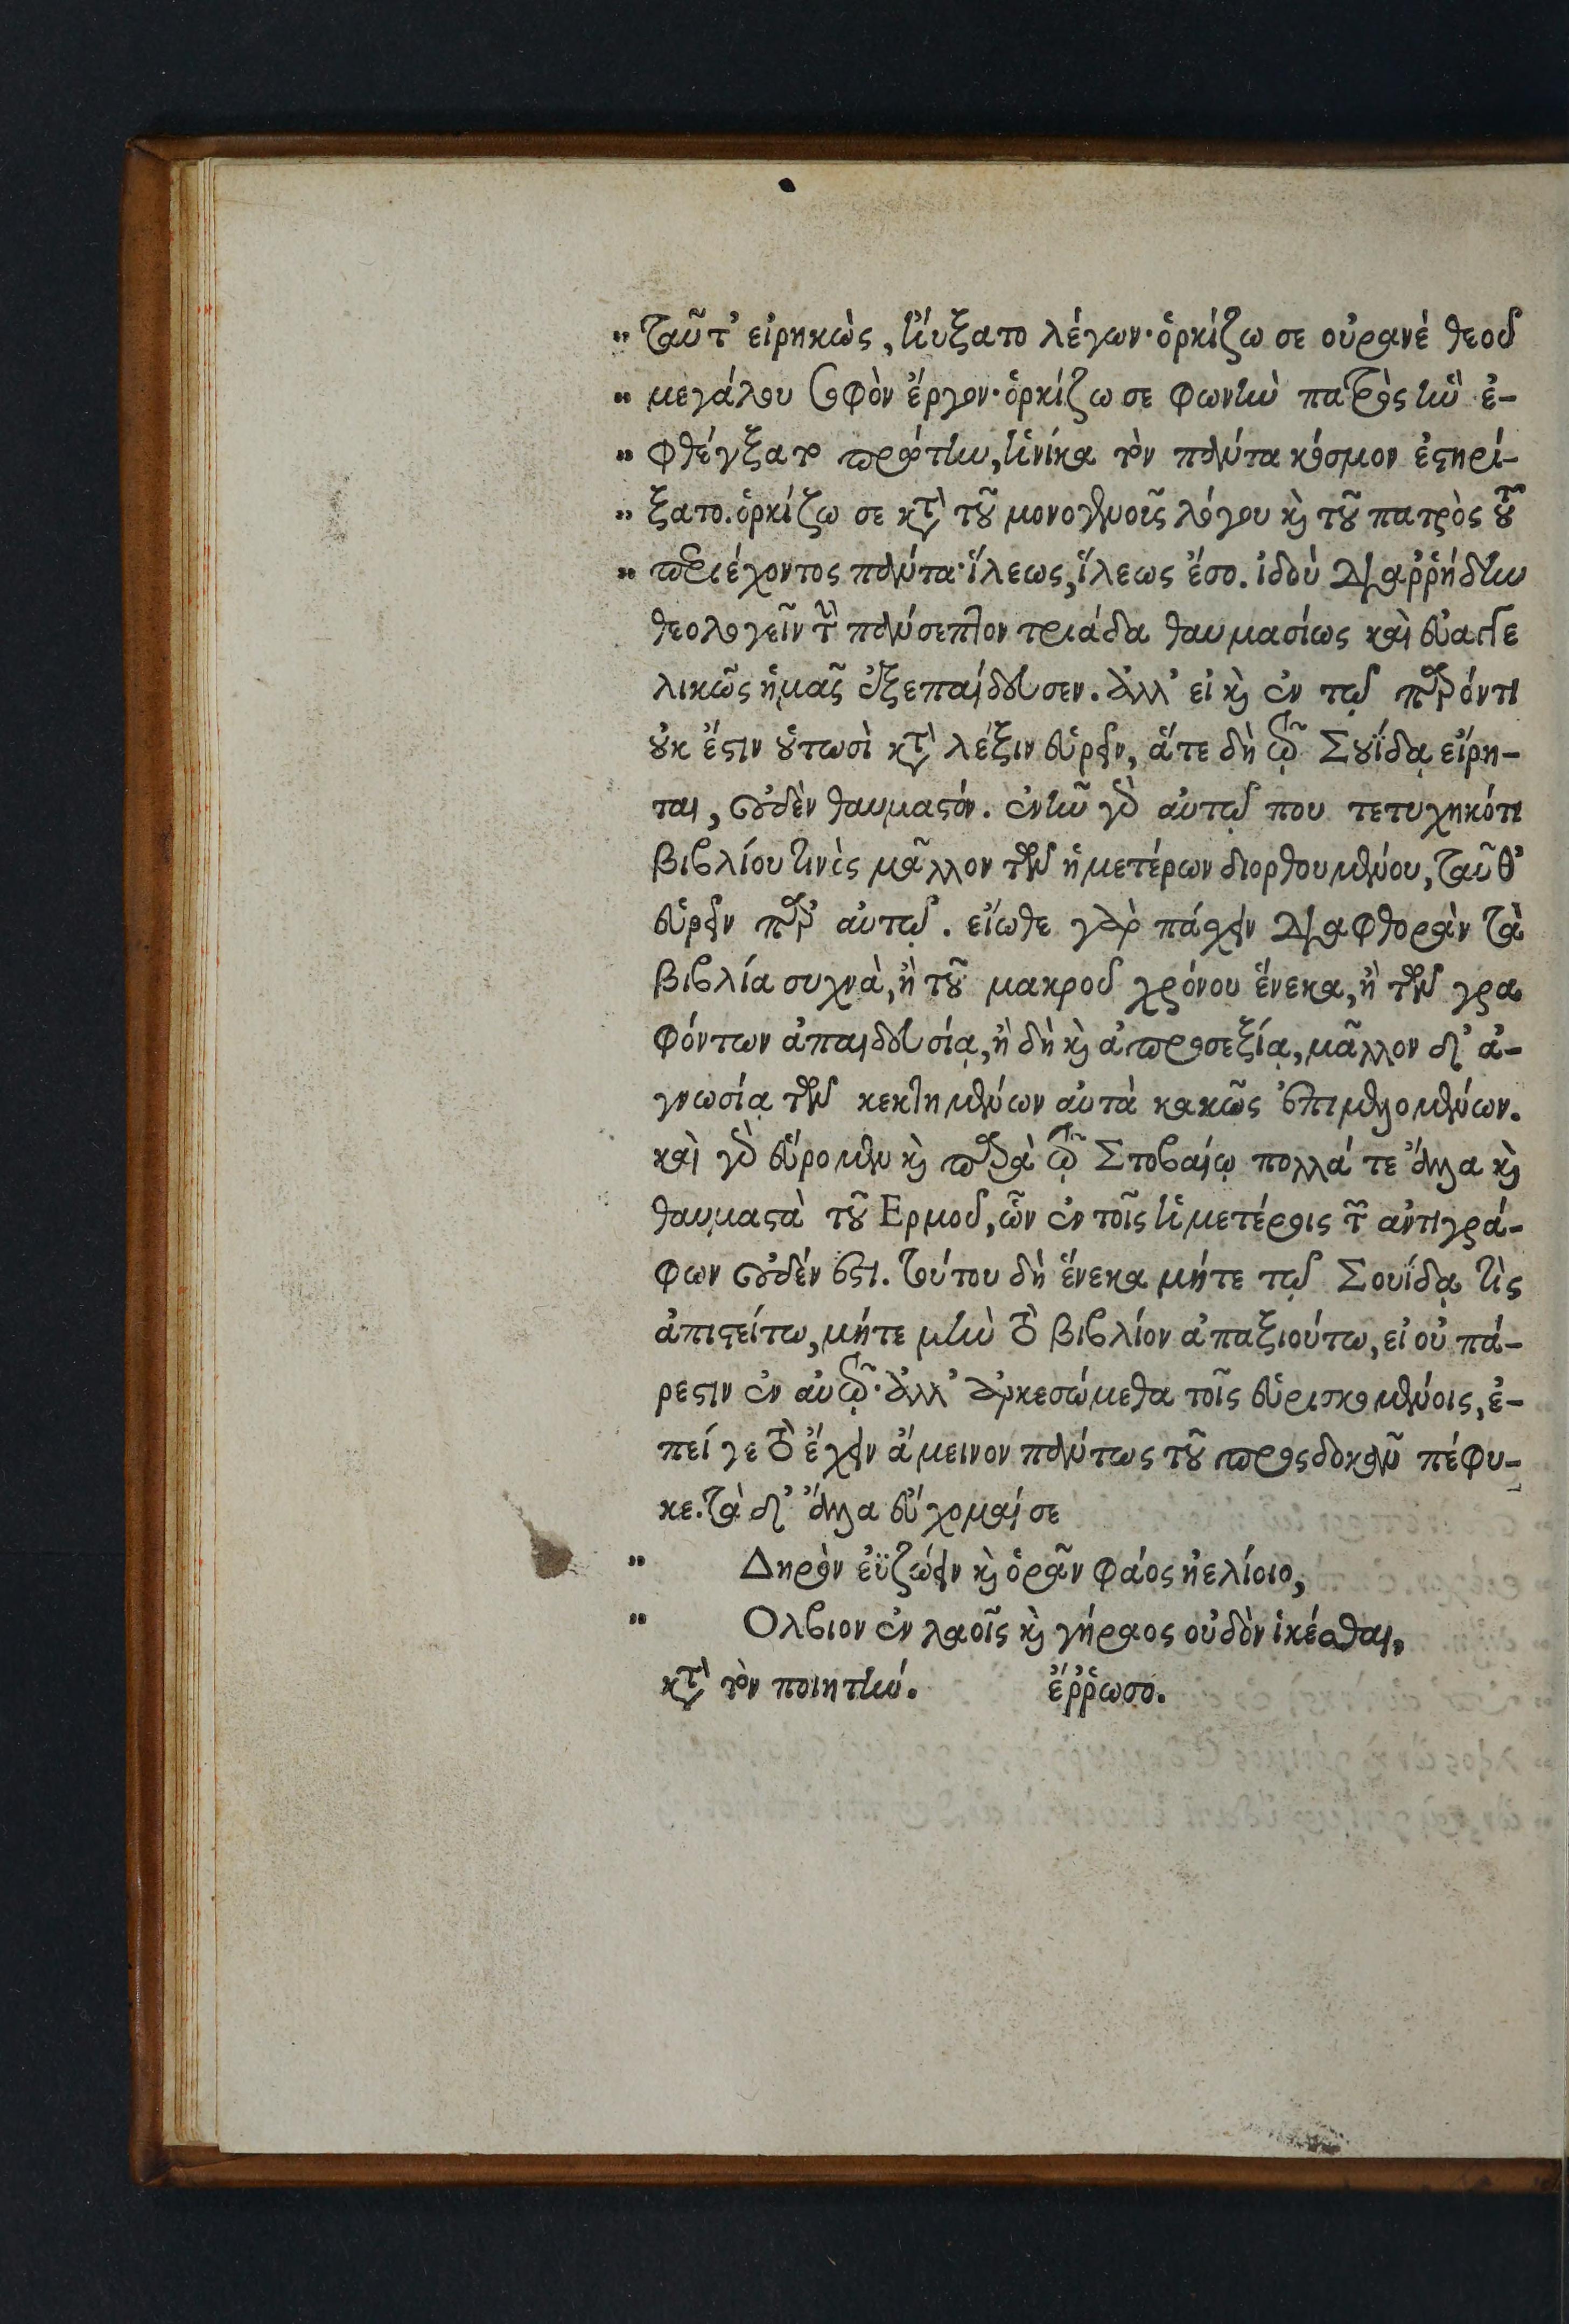 „ ταῦτ' εἰρηκὼς, ηὔξατο λέγων· ὁρκίζω σε οὐρανέ θεοῦ
„ μεγάλου σοφὸν ἔργον· ὁρκίζω σε φωνὴν πατρὸς ἣν ἐ-
„ φθέγξατο πρώτην, ἡνίκα τὸν πάντα κόσμον ἐστηρί-
„ ξατο. ὁρκίζω σε κτ̀ τοῦ μονογενοῦς λόγου κὶ τοῦ πατρὸς τοῦ
„ περιέχοντος πάντα· ἵλεως, ἵλεως ἔσο. ἰδού διαῤῥήδην
θεολογεῖν τὴν πάνσεπτον τριάδα θαυμασίως καὶ εὐαγγε
λικῶς ἡμᾶς ἐξεπαίδευσεν. ἀλλ' εἰ κὶ ἐν τῷ παρόντι
οὐκ ἔστιν οὑτωσὶ κτ̀ λέξιν εὑρεῖν, ἅτε δὴ τῷ Σουΐδᾳ εἴρη-
ται, οὐδὲν θαυμαστόν. ἐνῆν γὸ αὐτῷ που τετυχηκότι
βιβλίου τινὸς μᾶλλον τῶν ἡμετέρων διορθουμένου, ταῦθ'
εὑρεῖν παρ' αὐτῷ. εἴωθε γὰρ πάσχειν διαφθορὰν τὰ
βιβλία συχνὰ, ἢ τοῦ μακροῦ χρόνου ἕνεκα, ἢ τῶν γρα
φόντων ἀπαιδευσίᾳ, ἢ δὴ κὶ ἀπροσεξίᾳ, μᾶλλον δ' ἀ-
γνωσίᾳ τῶν κεκτημένων αὐτὰ κακῶς ἐπιμελομένων.
καὶ γὸ εὕρομεν κὶ παρὰ τῷ Στοβαίῳ πολλά τε ἄλλα κὶ
θαυμαστὰ τοῦ Ερμοῦ, ὧν ἐν τοῖς ἡμετέροις τῶν ἀντιγρά-
φων οὐδέν ἐστι. τούτου δὴ ἕνεκα μήτε τῷ Σουΐδᾳ τὶς
ἀπιστείτω, μήτε μὴν τὸ βιβλίον ἀπαξιούτω, εἰ οὐ πά-
ρεστιν ἐν αὐτῷ· ἀλλ' ἀρκεσώμεθα τοῖς εὑρισκομένοις, ἐ-
πεί γε τὸ ἔχειν ἄμεινον πάντως τοῦ προσδοκᾶν πέφυ-
κε. τὰ δ' ἄλλα εὔχομαί σε
„ Δηρὸν ἐϋζώειν κὶ ὁρᾶν φάος ἠελίοιο,
„ Ολβιον ἐν λαοῖς κὶ γήραος οὐδὸν ἱκέσθαι,
κτ̀ τὸν ποιητήν. ἔῤῥωσο.